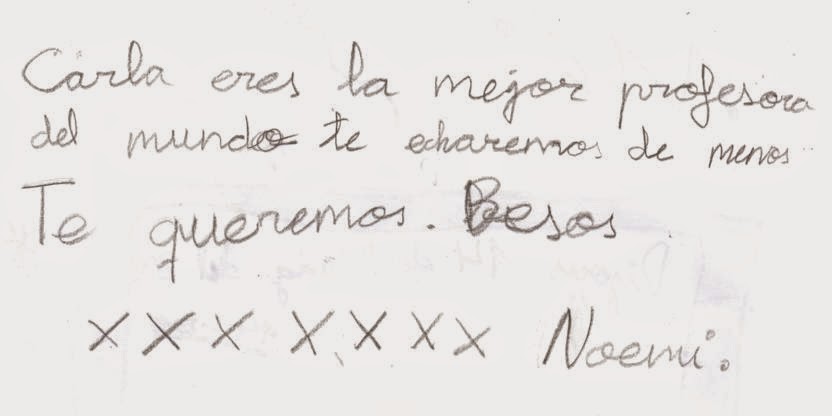 Carla eres la mejor profesora
del mundo te echaremos de menos
Te queremos. Besos
X X X X X X X Noemi.